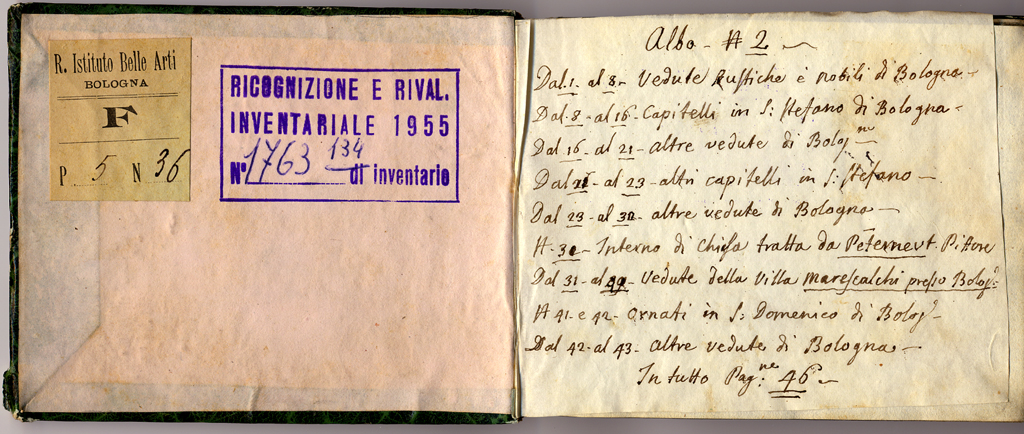 R. Istituto Belle Arti
BOLOGNA
F
P. 5 N 36
RICOGNIZIONE E RIVAL.
INVENTARIALE 1955
N° 1763 134 di inventario
Albo - N 2
Dal 1. al 8 - Vedute Rustiche è nobili di Bologna -
Dal 8 - al 16 - Capitelli in S: Stefano di Bologna -
Dal 16 - al 21 - altre vedute di Bolog:ne -
Dal 21 - al 23 - altri capitelli in S: Stefano -
Dal 23 - al 30 - altre vedute di Bologna -
N - 30 - Interno di chiesa tratta da Peterneut. Pittore
Dal 31 - al - Vedute della Villa Marescalchi presso Bolog:
N 41 - e 42 - ornati in S: Domenico di Bolog: -
Dal 42 - al 43 - altre vedute di Bologna -
In tutto Pag:ne 46 -